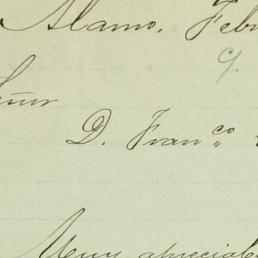 Alamo, Feb
9.
Señor
D. Fran.co
Muy apreciab